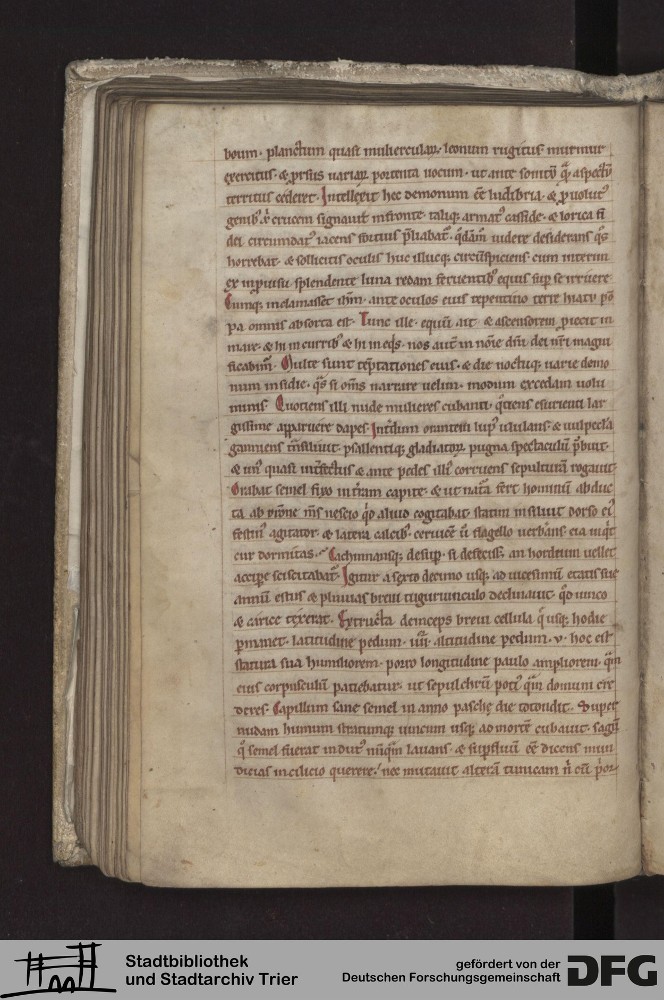 boum · planctum quasi muliercularꝝ · leonum rugitus murmur
exercitus · & ꝓrsus uariaꝝ portenta uocum · ut ante sonitū q̄ aspectū
territus cederet · Intellexit hec demonum ēē ludibria · & ꝓuolutꝰ
genibꝰ xp̄i crucem signauit in fronte · taliq; armatꝰ casside · & lorica fi
dei circumdatꝰ iacens fortius p̄liabat᷑ ·
horrebat · & sollicitis oculis huc illucq; circūspiciens · cum interim
ex inprouisu splendente luna redam feruentibꝰ equis sup̄ se irruere
Cumq; inclamasset ihm̄ · ante oculos eius repentino terre hiatu pō
pa omnis absorta est · Tunc ille · equū ait · & ascensorem ꝓiecit in
mare · & hi in curribꝰ & hi in eqͥs · nos aut̄ in noīe dn̄i dei nr̄i magni
ficabim᷑ · Multe sunt tēptationes eius · & die noctuq; uarie demo
num insidie · qͣs si om̄s narrare uelim · modum excedam uolu
minis · Quotiens illi nude mulieres cubanti · qͦtiens esurienti lar
gissime apparuere dapes · Int̄dum orantem lupꝰ ululans · & uulpecl̄a
ganniens t̄nsiliuit · psallentiq; gladiatorꝝ pugna spectaculū p̄buit ·
& unꝰ quasi int̄fectus & ante pedes illiꝰ corruens sepulturā rogauit ·
Orabat semel fixo in t̄ram capite · & ut nat̄a fert hominū abduc
ta ab or̄one m̄s nescio qͥd aliud cogitabat · statim insiluit dorso eiꝰ
festinꝰ agitator · & latera calcibꝰ · ceruicē u̅ flagello uerb̄ans · eia inqͥt
cur dormitas · Cachinnansq; desup̄ · si defecisset · an hordeum uellet
accipe sciscitabat᷑ · Igitur a sexto decimo usq; ad uicesimū etatis sue
annū estus & pluuias breui tugurunculo declinauit · qͦd iunco
& carice texerat · Extructa deinceps breui cellula q̄ usq; hodie
ꝑmanet · latitudine pedum · iiii · altitudine pedum · v · hoc est
statura sua humiliorem · porro longitudine paulo ampliorem · qͣm
eius corpusculū patiebatur · ut sepulchrū potiꝰ qͣm domum cre
deres · Capillum sane semel in anno pasche die totondit · Super
nudam humum stratumq; iunceum usq; ad mortē cubauit · sagū
qͦ semel fuerat indutꝰ nūqͣm lauans · & sup̄fluū ēē dicens mun
dicias in cilicio querere · nec mutauit alterā tunicam n̄ cū p̄or
Stadtbibliothek
und Stadtarchiv Trier
gefördert von der
Deutschen Forschungsgemeinschaft
DFG